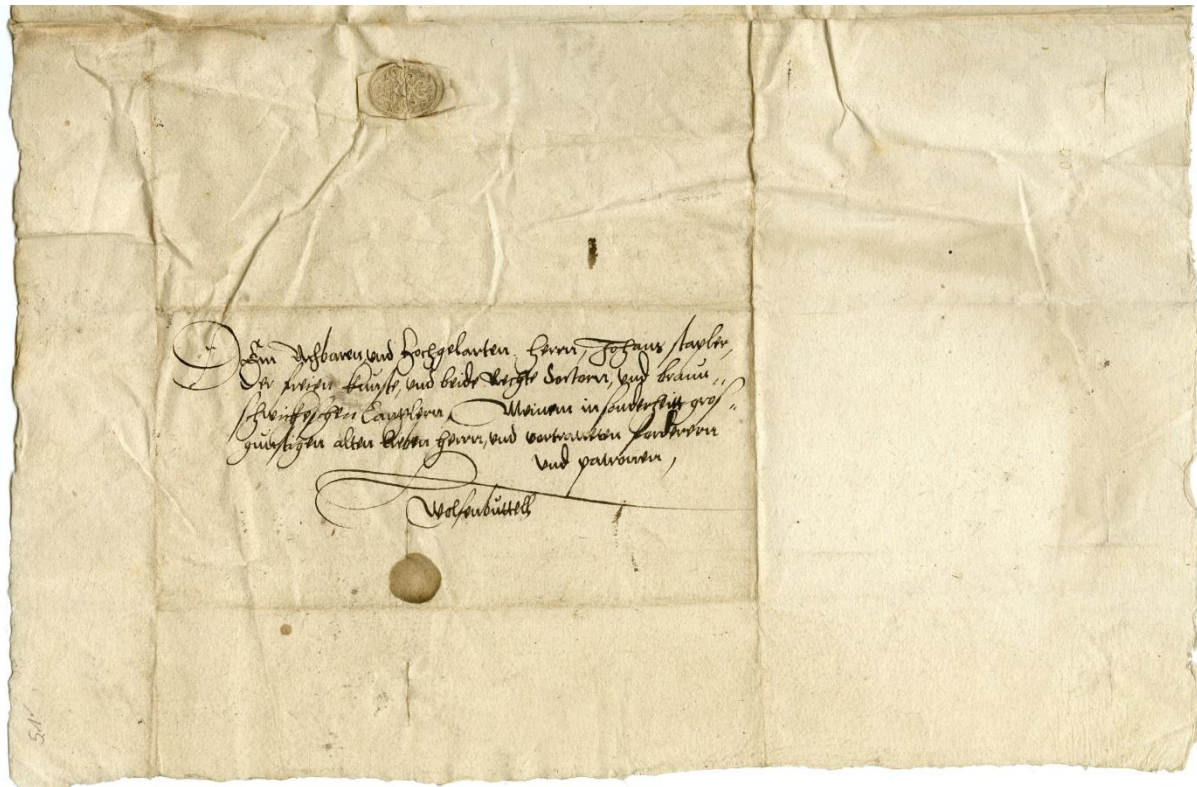 Dem Achbaren, und Hochgelarten, Herrn, Johans stapler,
der freien kunste, und beide Rechte doctorn, und braun„
schwickeschen Cantzlern, Meinem in sonderheitt gros„
gunstigen alten lieben herrn, und vertraueten forderern
und patronen,
Wolfenbuttell
51